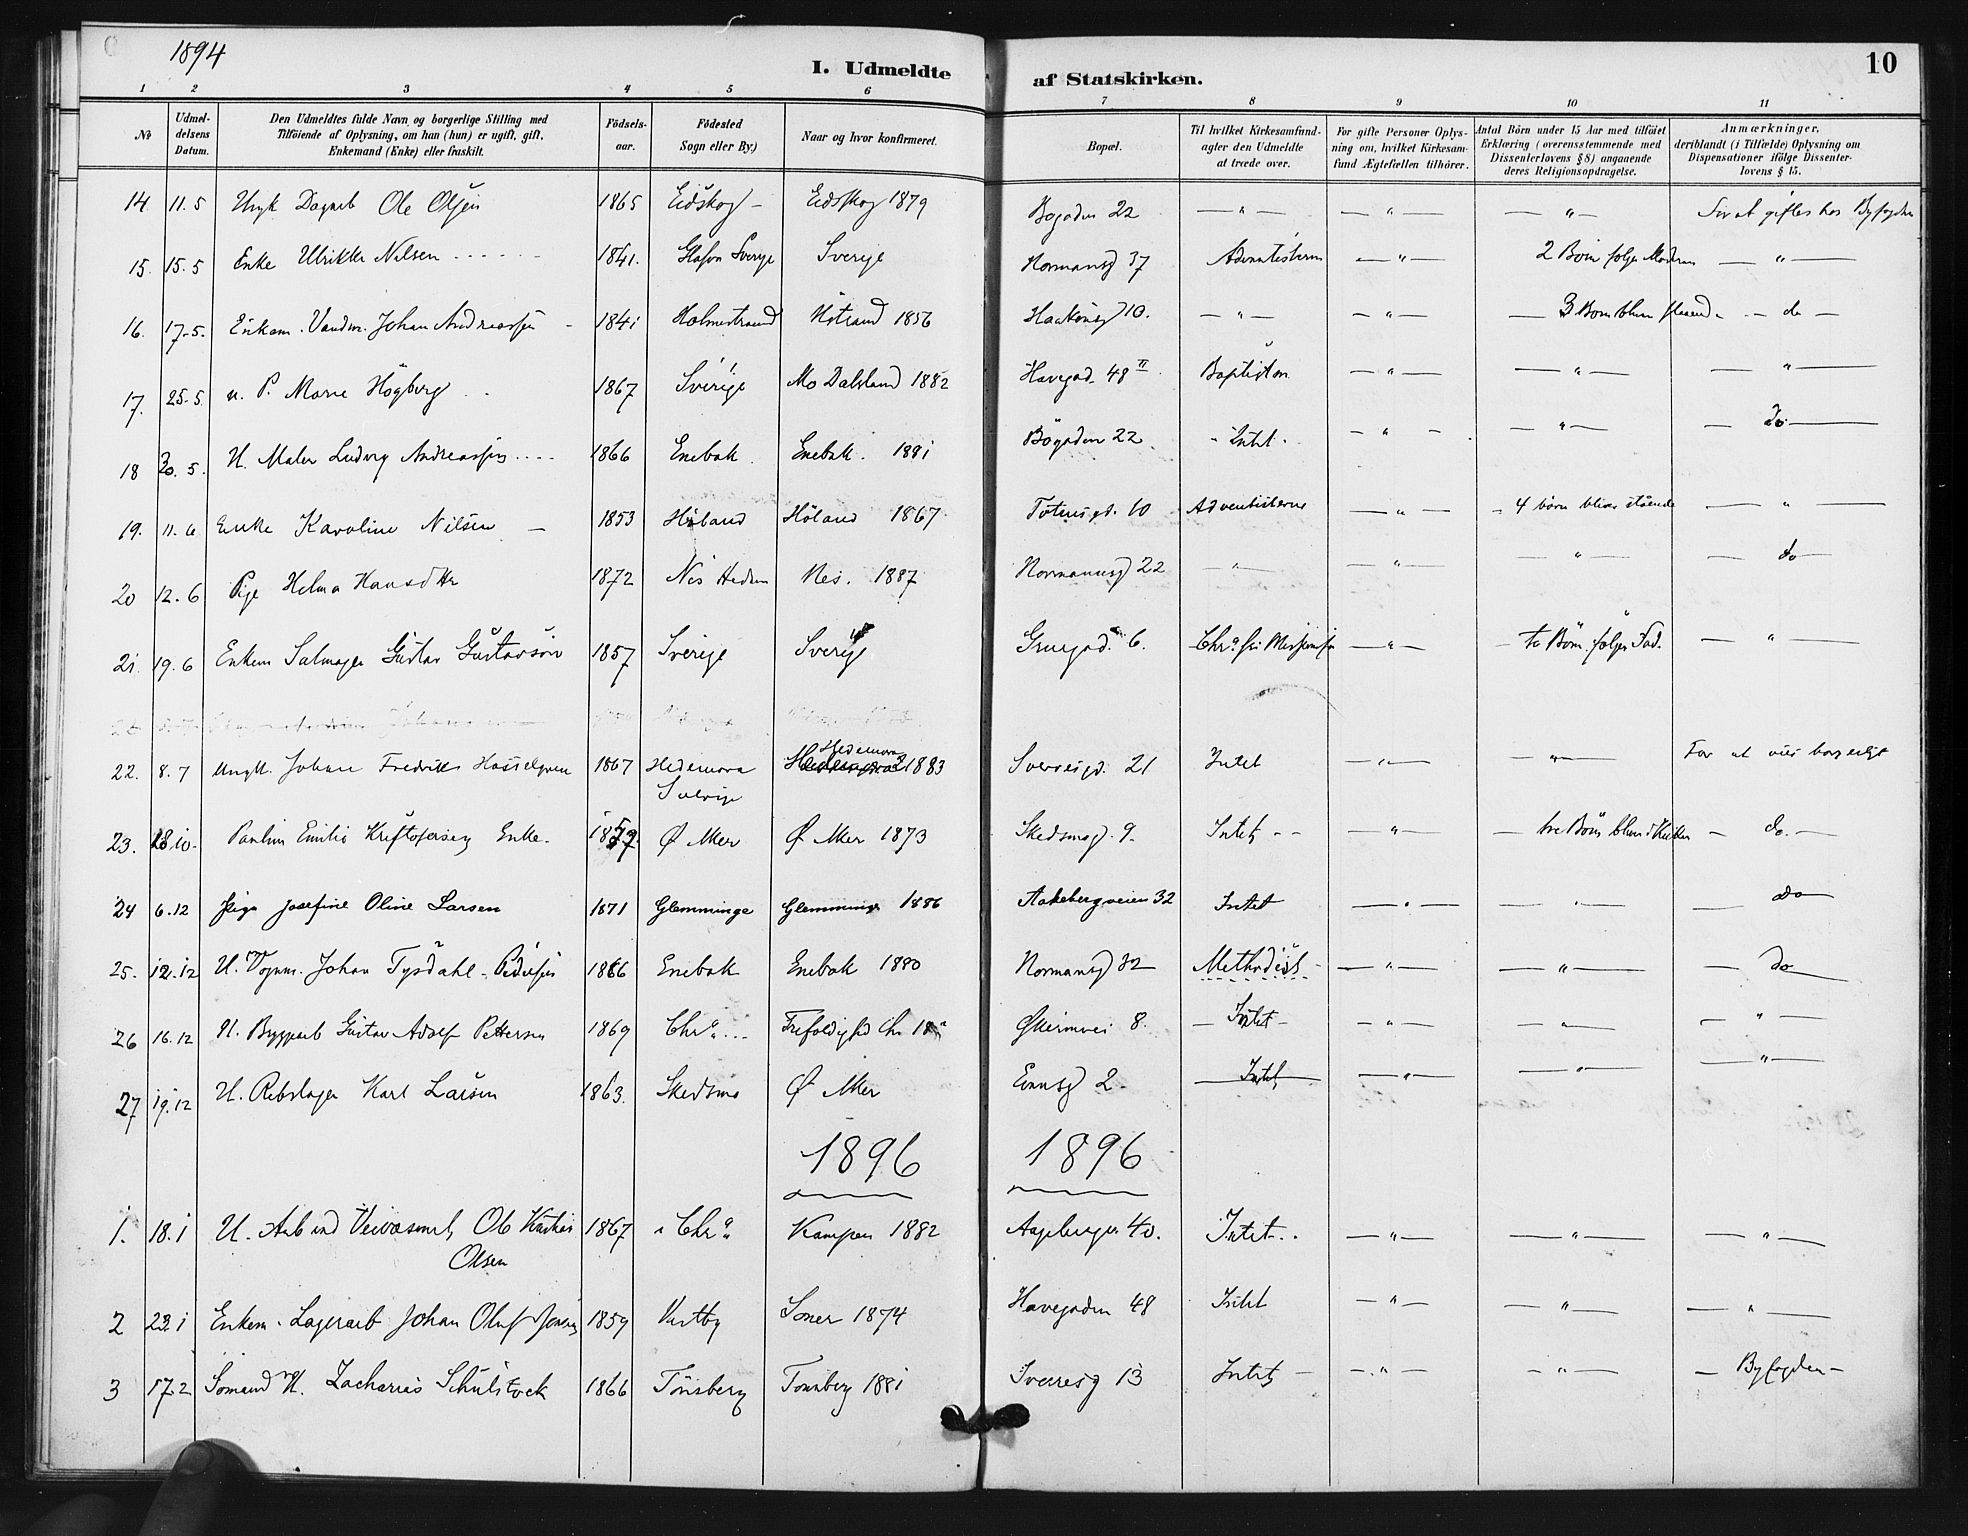 1894
I. Udmeldte af Statskirken.
10
1 2 3 4 5 6 7 8 9 10 11
№
Udmeldelsens Datum.
Den Udmeldtes fulde Navn og borgerlige Stilling med
Tilföiende af Oplysning, om han (hun) er ugift, gift,
Enkemand (Enke) eller fraskilt.
Födselsaar.
Födested
Sogn eller By.)
Naar og hvor konfirmeret.
Bopæl.
Til hvilket Kirkesamfund-
agter den Udmeldte
at træde over.
For gifte Personer Oplys-
ning om, hvilket Kirkesam-
fund Ægtefællen tilhörer.
Antal Börn under 15 Aar med tilföiet
Erklæring (overensstemmende med
Dissenterlovens § 8) angaaende
deres Religionsopdragelse.
Anmærkninger,
deriblandt (i Tilfælde) Oplysning om
Dispensationer ifölge Dissenter-
lovens § 15.
14 11.5 Ole Olsen 1865 Eidskog – Eidskog 1879 Bogaden 22 — " — — " — — " — For at giftes hos Byfogden
15. 15.5 Enke Ulrikke Nilsen 1841. Sverge Sverige Normansg 37 Adventisterne — " — 2 Börn følger Moderen — " —
16. 17.5. Enkem. Johan Andreassen 1841 Holmestrand Hstrand 1856 Haakonsg 10. — " — — " — 3 Börn — do —
17. 25.5. u. P. Marie Högberg 1867 Sverige Mo Dalsland 1882 Havegad. 48 II Baptisten — " — — " — — " —
18 30.5. U. Maler Ludvig Andreassen 1866 Enebak Enebak. 1881 Bögaden 22 Intet. — " — — " — — Do. —
19. 11.6 Enke Karoline Nilsen — 1853 Höland Höland 1867 Totensgd. 10 Adventisterne — " — 4 börn bliver stående — " —
20 12.6 Pige Helma Hansdtr 1872 Nes Hedem Nes. 1887 Normannsg 22 — " — — " — — " — — do —
21. 19.6 Enkem Salmager Gustav Gustavson 1857 Sverige Sverige Gruegad. 6. Chra fri — " — to Börn følger Fad. — " —
22. 8.7 Ungk. Johan Fredrik Hasselgren 1867 Hedemora Hedemora 1883 Sverresgd. 21 Intet — " — — " — For at vies borgerligt
Sverige
23. 18.10. Pauline Emilie Kristofersen Enke. 1859. Ø Aker Ø Aker 1873 Skedsmog. 9. Intet — " — — tre Börn — do. —
24 6.12 Pige Josefine Oline Larsen 1871 Glemminge Glemminge 1886 Aakebergveien 32 Intet — " — — " — — do
25. 12.12 U. Johan Tysdahl Pedersen 1866 Enebak Enebak 1880 Normansg 32 Methodist — " — — " — — Do
26 16.12 U. Byggearb Gustav Adolf Pettersen 1869 Chra Trefoldighed Økernvei 8. — Intet — — " — — " — — " —
27 19.12 U. Rebslager Karl Larsen 1863. Skedsmo Ø Aker Ennsg 2. Intet — " — — " — — " —
1896 1896
1. 18.1 U. Arb ved Veivæsenet, Ole 1867 Chra Kampen 1882 Aagebergv 40. Intet.. — " — — " — — " —
Olsen
2 23.1 Enkem. Lagerarb Johan Oluf 1859 Vestby Soner 1874 Havegaden 48 Intet — " — — " — — " —
3 17.2 Sömand U. Zacharias Schulstock 1866 Tönsberg Tönsberg 1881 Sverresg 13 Intet — — " — — " — — Byfogden —